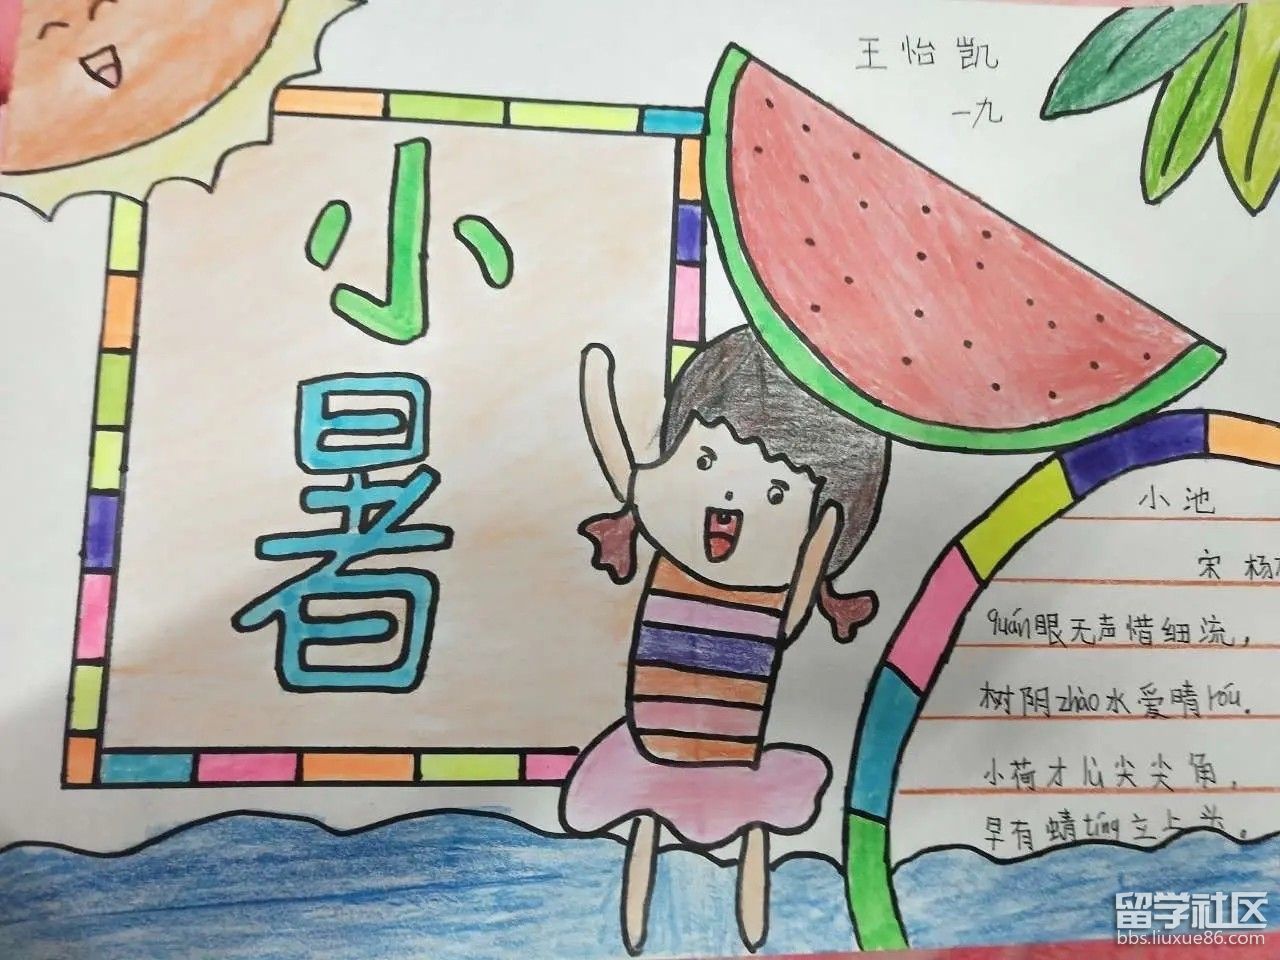 王怡凯
一九
小暑
小池
宋 杨
quán眼无声惜细流,
树阴zhào水爱晴róu.
小荷才lù尖尖角,
早有蜻tíng立上头。
留学社区
bbs.liuxue86.com